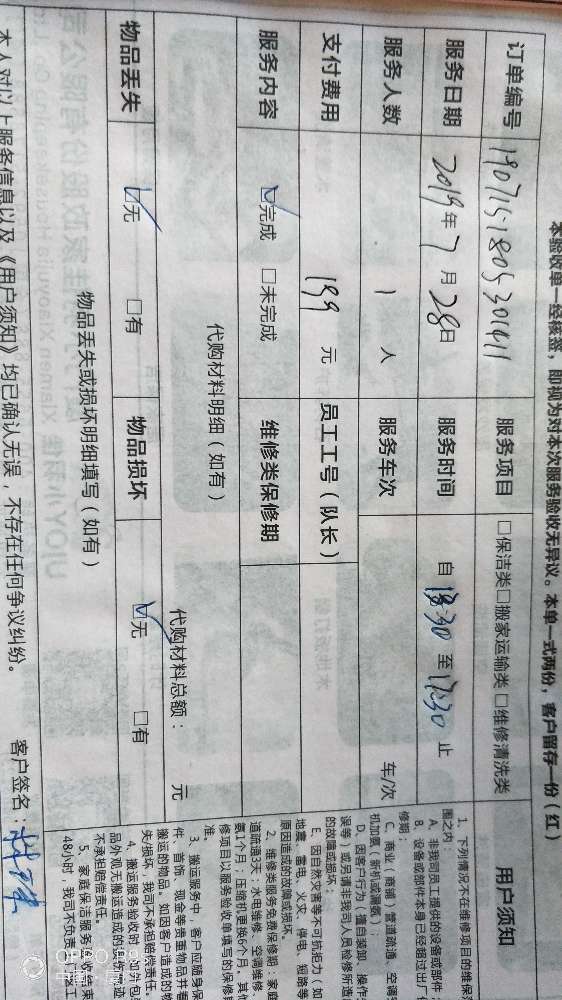 本验收单一经核签，即视为对本次服务验收无异议。本单一式两份，客户留存一份（红）
订单编号 服务项目 □保洁类□搬家运输类□维修清洗类
服务日期 2019年7月28日 服务时间 自 至17:30止
服务人数 1人 服务车次 车/次
支付费用 199元 员工工号（队长）
服务内容 ☑完成 □未完成 维修类保修期
代购材料明细（如有）
代购材料总额： 元
物品丢失 ☑无 □有 物品损坏 ☑无 □有
物品丢失或损坏明细填写（如有）
本人对以上服务信息以及《用户须知》均已确认无误，不存在任何争议纠纷。
客户签名：
用户须知
1. 下列情况不在维修项目的维保范
围之内
A. 非我司员工提供的设备或部件
B. 设备或部件本身已经超过出厂保
修期；
C. 商业（商铺）管道疏通、空调
机加氨（新机或漏氨）；
D. 因客户行为（擅自装卸、操作
误等）或另请非我司人员检修所造
的故障或损坏；
E. 因自然灾害等不可抗拒力（如
地震、雷电、火灾、停电、短路等
原因造成的故障或损坏。
2. 维修类服务免费保修期：家庭
道疏通3天；水电维修、空调维修、
氨1个月；压缩机更换6个月，其他
修项目以服务验收单填写的保修期
准。
3. 搬运服务中，客户应随身保
件、首饰、现金等贵重物品并看
搬运的物品。如因客户造成的物
失/损坏，我司不承担赔偿责任。
4. 搬运服务验收时，如外包
品外观无搬运造成的损伤痕迹
不承担赔偿责任。
5. 家庭保洁服务验收结束
48小时，我司不负责